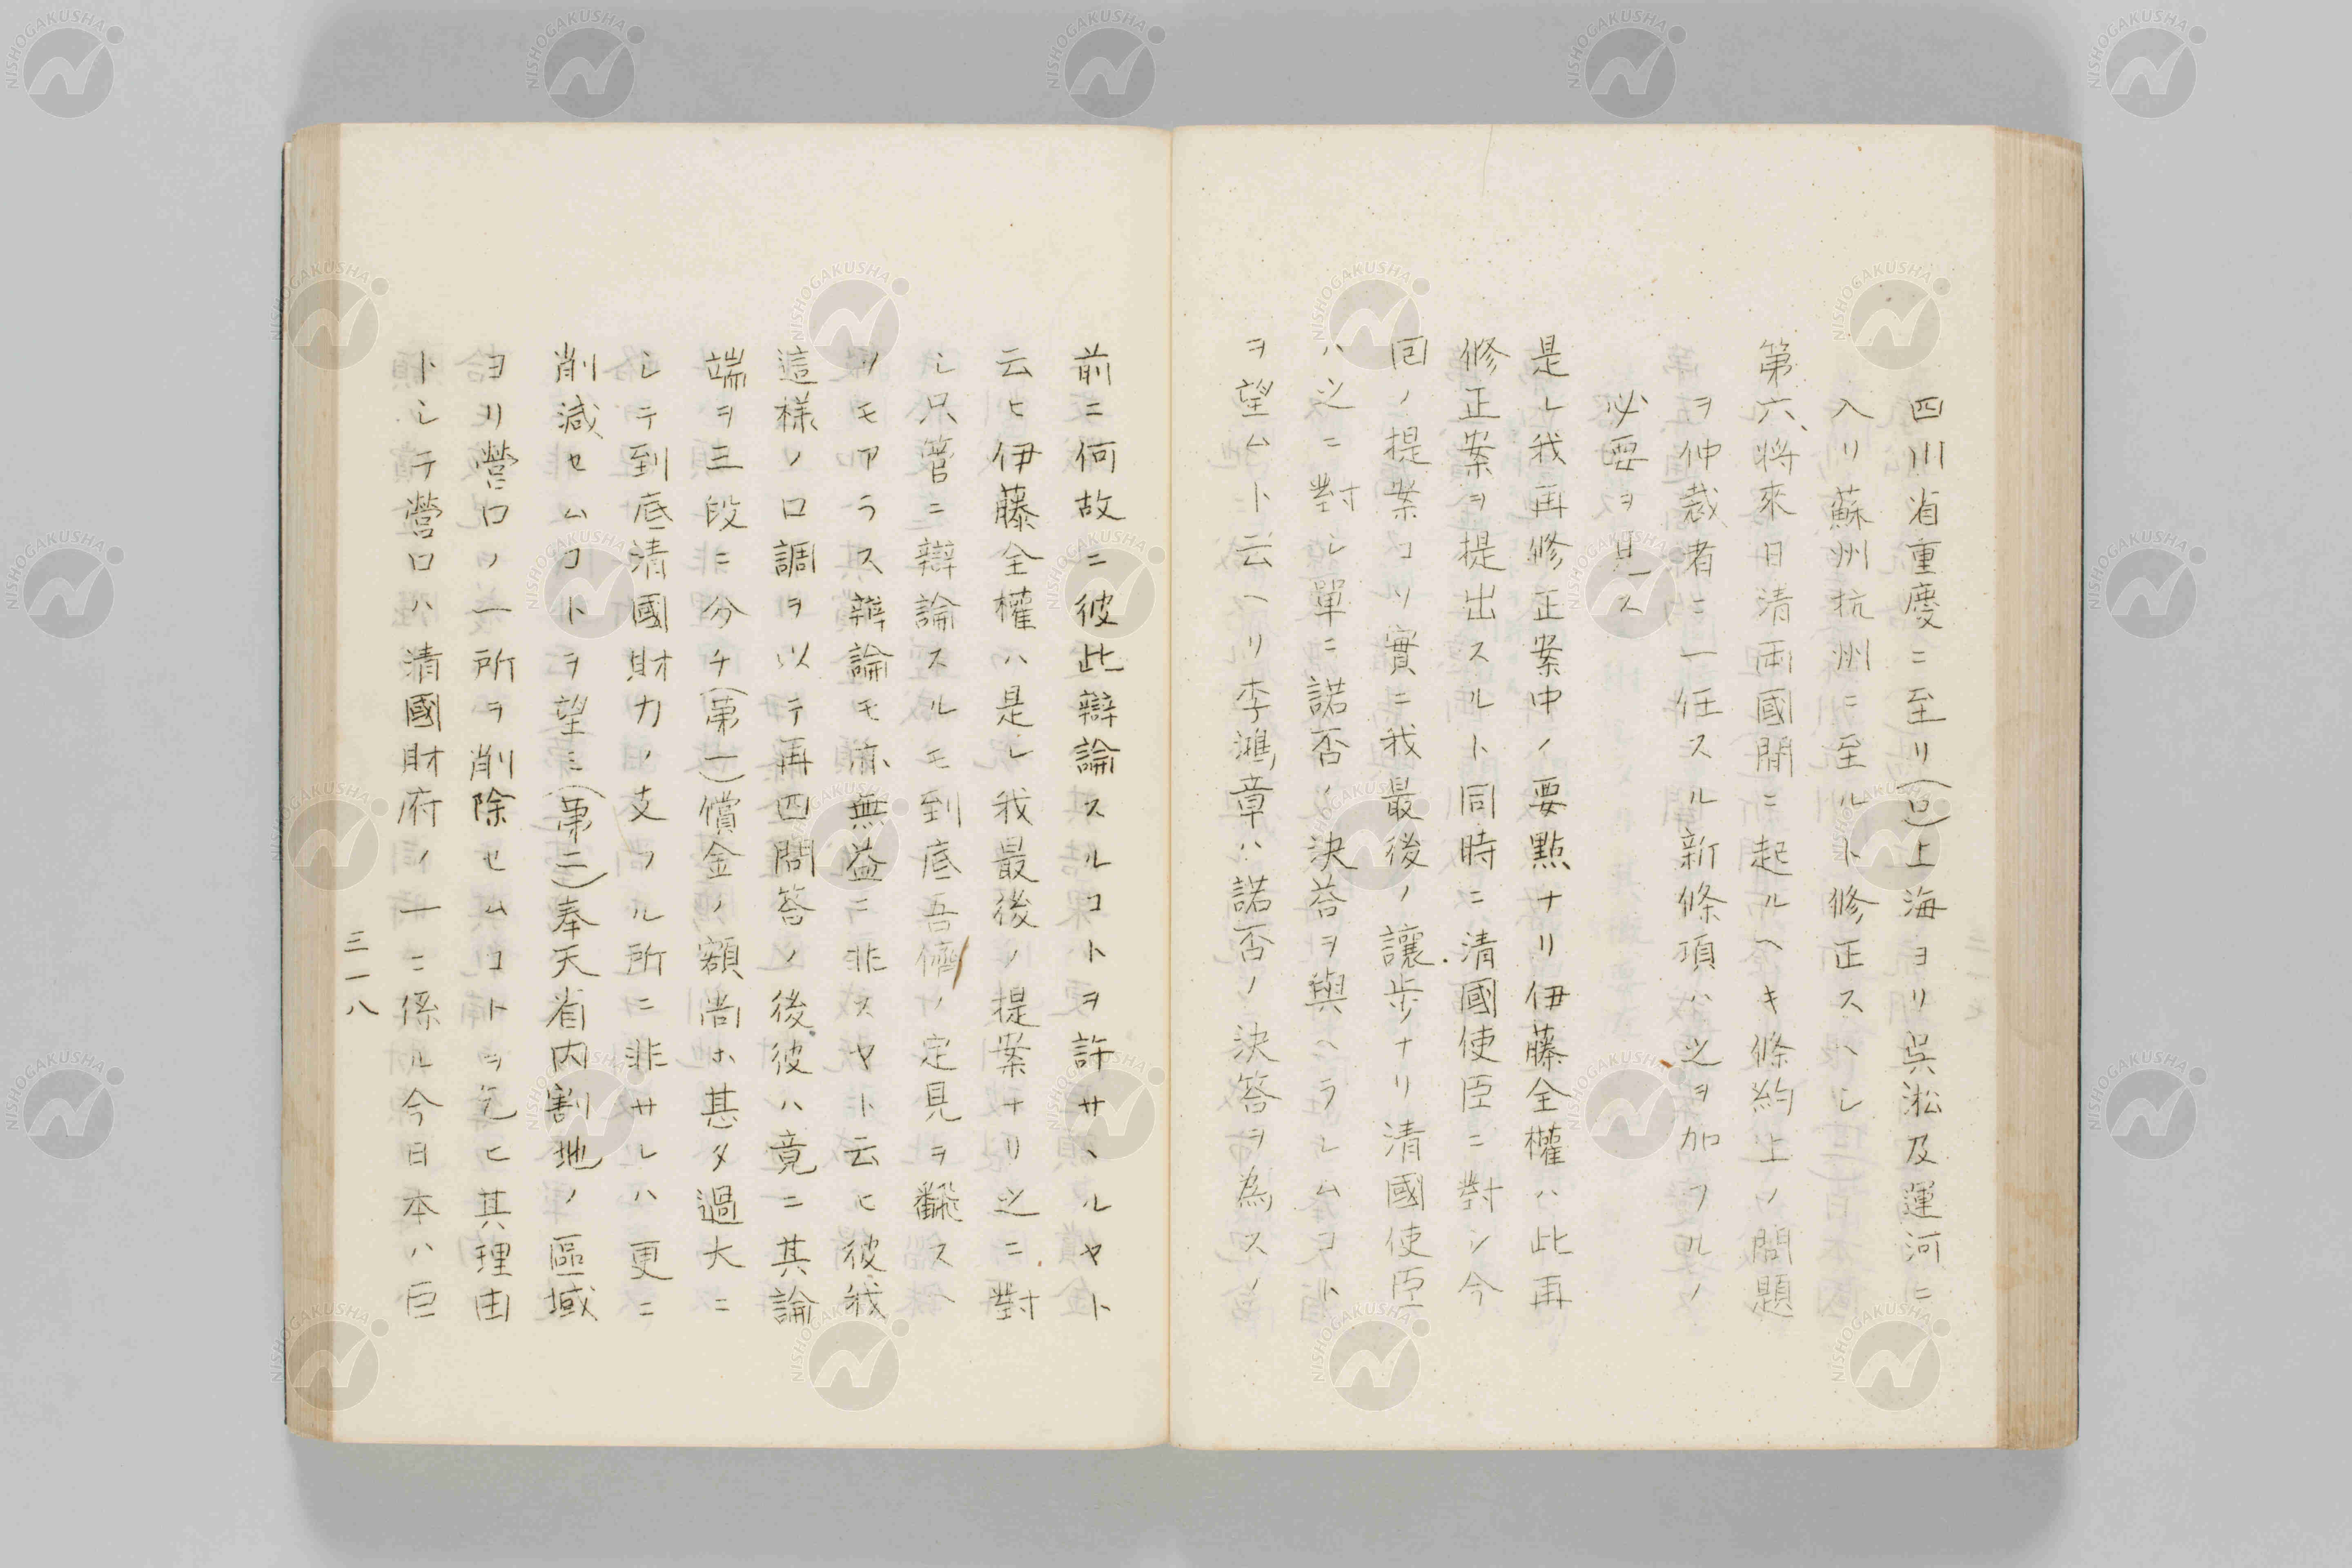 四川省重慶ニ至リ(ロ)上海ヨリ呉淞及運河ニ
入リ蘇州杭州ニ至ルト修正スヘシ
第六、將來日清両國間ニ起ルヘキ條約上ノ問題
ヲ仲裁者ニ一任スル新條項ハ之ヲ加フルノ
必要ヲ見ス
是レ我再修正案中ノ要點ナリ伊藤全權ハ此再
修正案ヲ提出スルト同時ニ清國使臣ニ對シ今
回ノ提案コソ實ニ我最後ノ讓歩ナリ清國使臣
ハ之ニ對シ單ニ諾否ノ決荅ヲ與ヘラレムコト
ヲ望ムト云ヘリ李鴻章ハ諾否ノ決答ヲ為スノ
前ニ何故ニ彼此辯論スルコトヲ許サヽルヤト
云ヒ伊藤全權ハ是レ我最後ノ提案ナリ之ニ對
シ只管ニ辯論スルモ到底吾儕ノ定見ヲ飜スヘ
ソモアラス辯論モ亦無益ニ非スヤト云ヒ彼我
這様ノ口調ヲ以テ再四問答ノ後彼ハ竟ニ其論
端ヲ三段ニ分チ(第一)償金ノ額尚ホ甚タ過大ニ
シテ到底清國財力ノ支フル所ニ非サレハ更ニ
削減セムコトヲ望ミ(第二)奉天省内割地ノ區域
ヨリ營口ノ一所ヲ削除セムコトヲ乞ヒ其理由
トシテ營口ハ清國財府ノ一ニ係ル今日本ハ巨
三一八
NISHOGAKUSHA